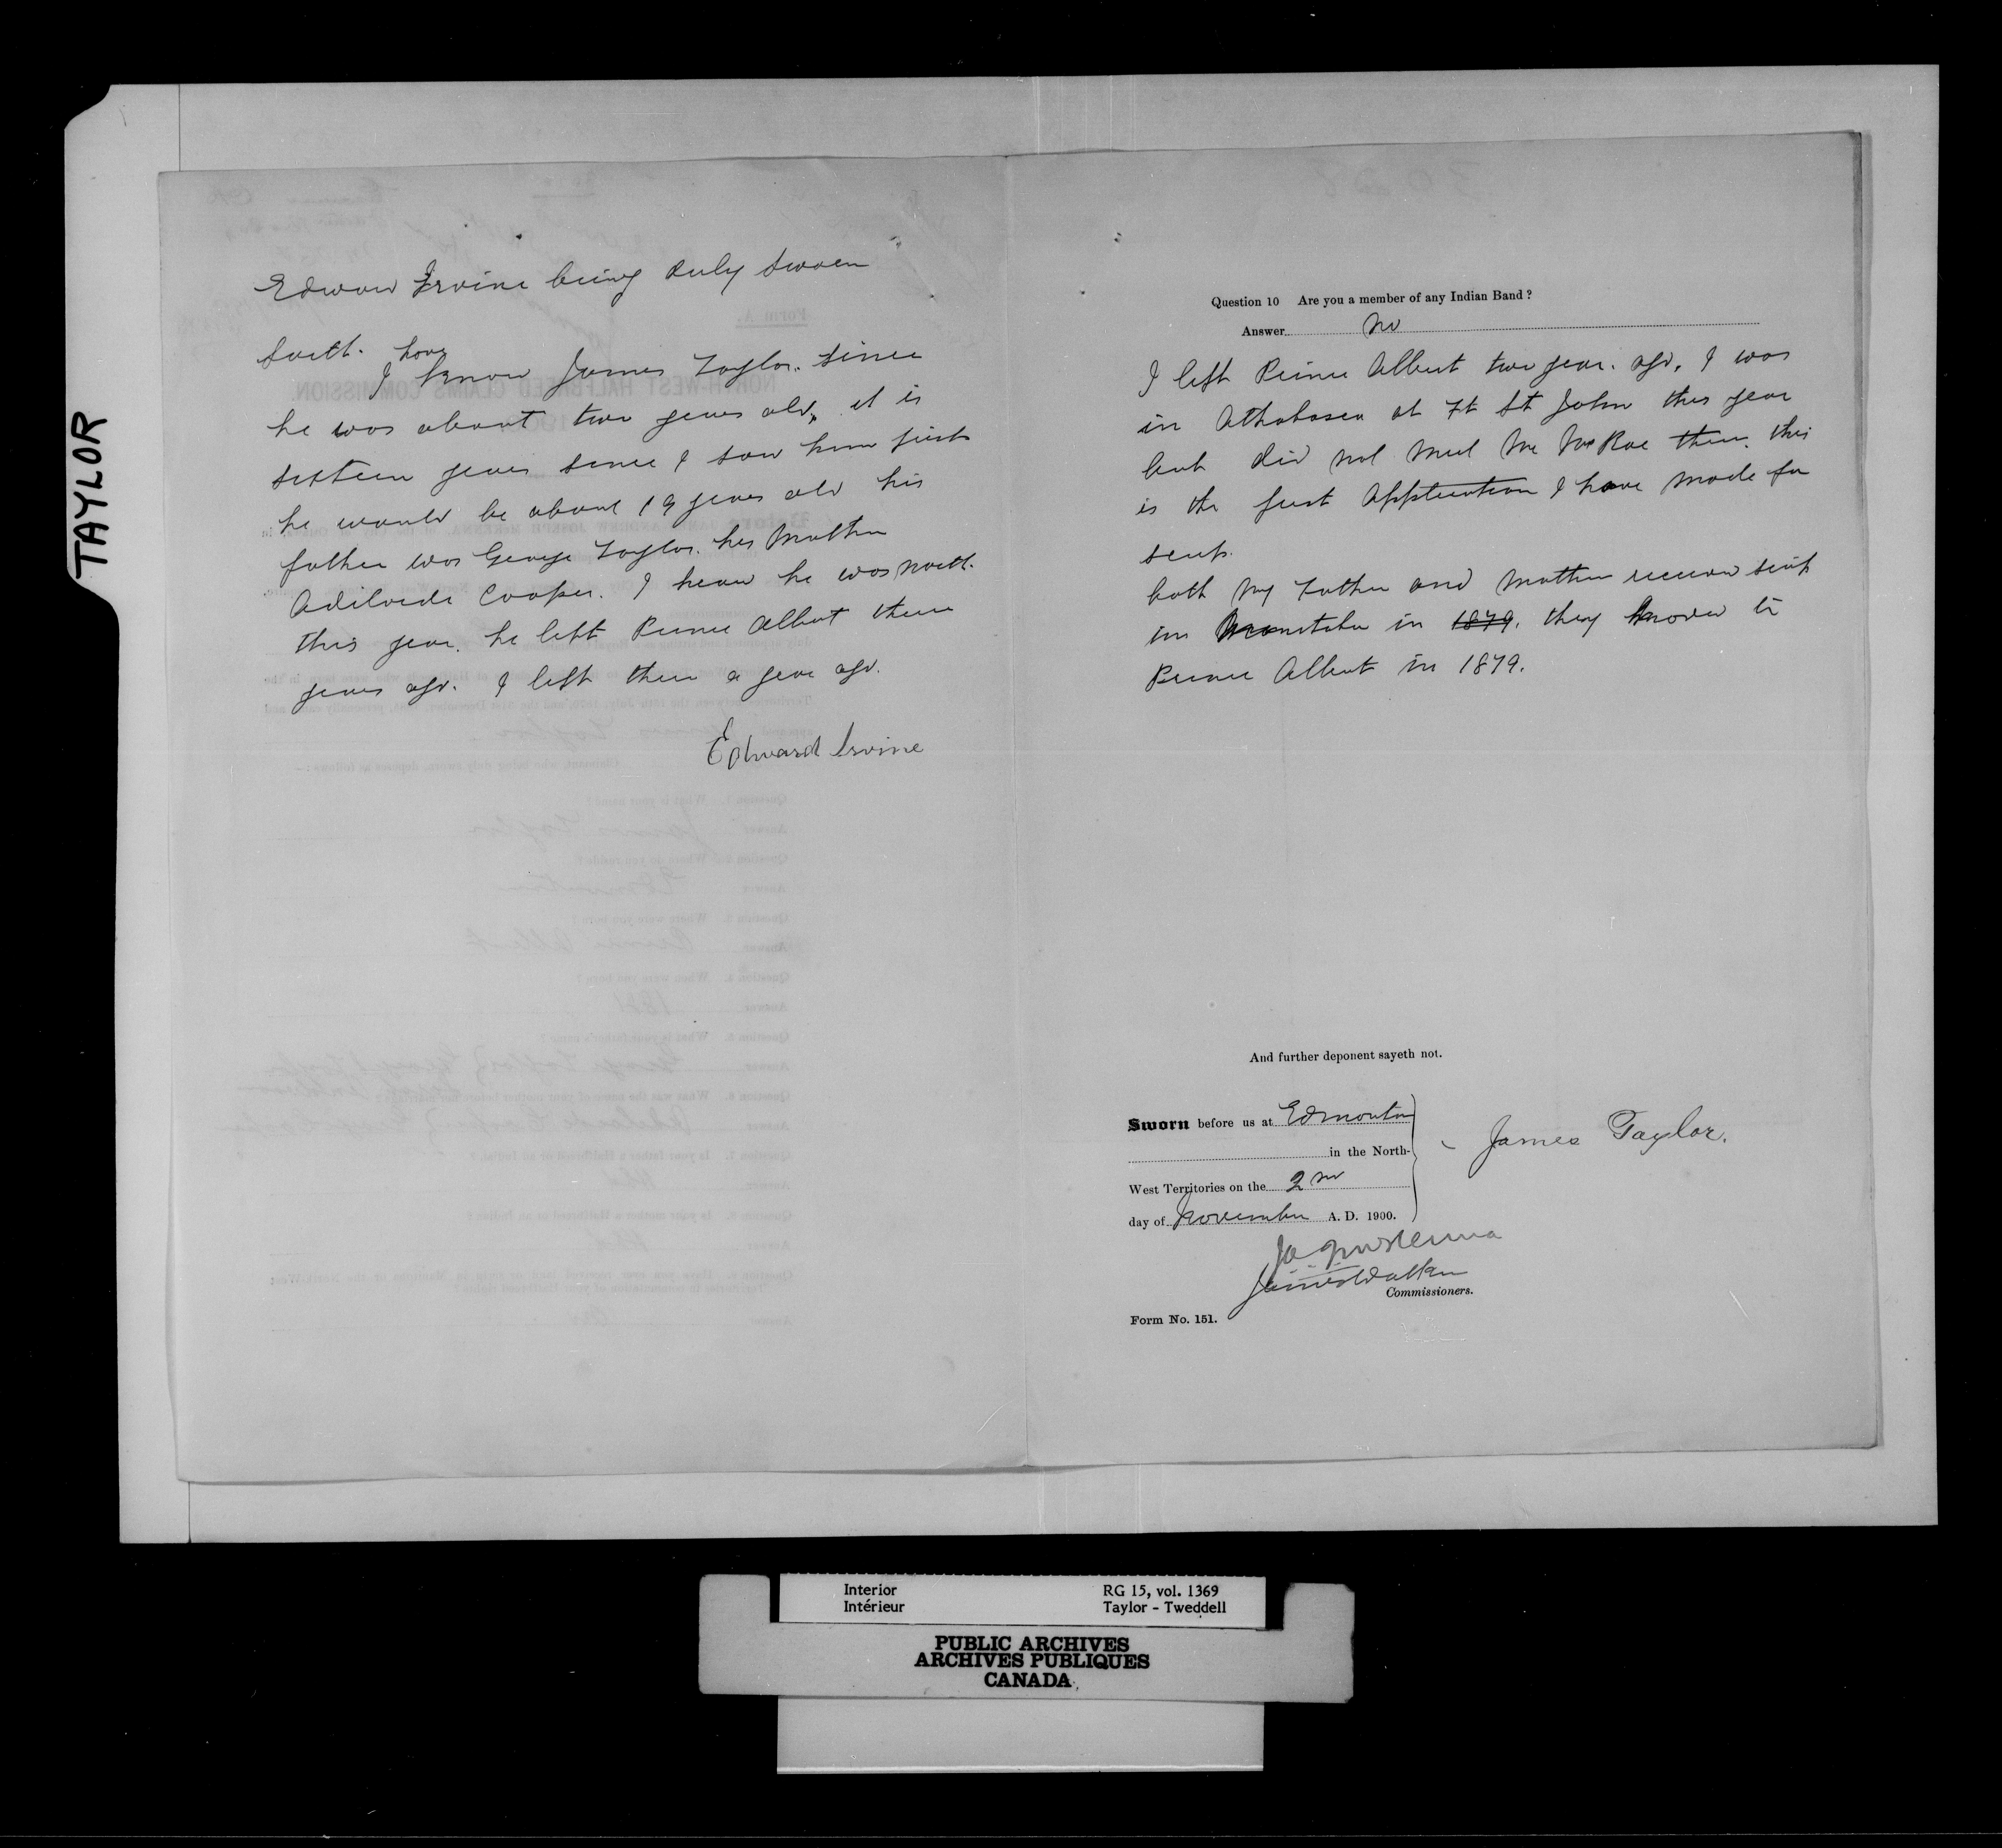 TAYLOR
Edward Irvine being duly sworn
saith. have
I know James Taylor. since
he was about two years old, it is
sixteen years since I saw him first
he would be about 19 years old his
father was George Taylor. his Mother
Adilaide Cooper. I hear he was north
this year. he left Prince Albert there
years ago. I left there a year ago.
Edward Irvine
Question 10 Are you a member of any Indian Band?
Answer No
I left Prince Albert two year. ago. I was
in Athabasca at Ft St John this year
but did not meet Mr McRae there. this
is the first Application I have made for
scrip.
both my Father and Mother received scrip
in Manitoba in 1879. they moved to
Prince Albert in 1879.
And further deponent sayeth not.
Sworn before us at Edmonton
in the North-
West Territories on the 2nd
day of November A. D. 1900.
James Taylor.
James Walker
Commissioners.
Form No. 151.
Interior
Intérieur
RG 15, vol. 1369
Taylor - Tweddell
PUBLIC ARCHIVES
ARCHIVES PUBLIQUES
CANADA